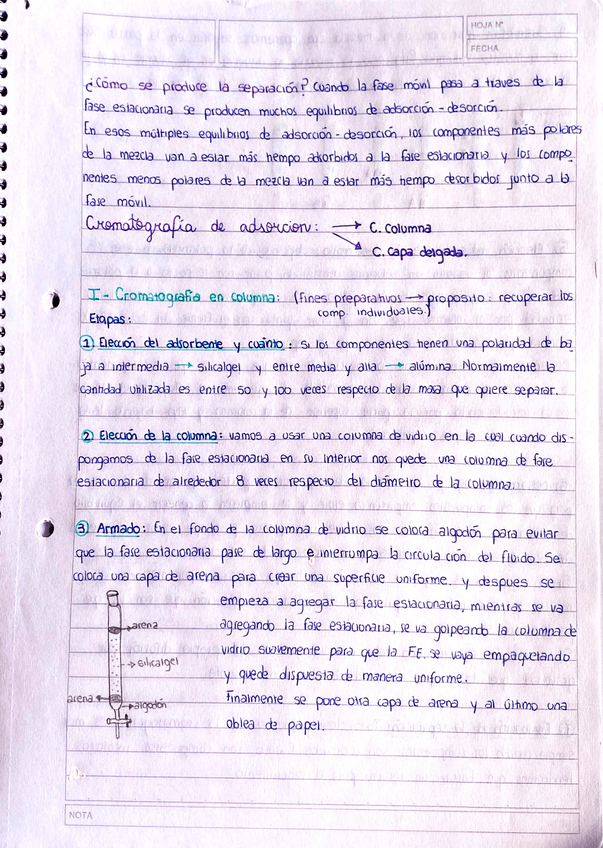 HOJA Nº
FECHA
¿Cómo se produce la separación? Cuando la fase móvil pasa a traves de la
fase estacionaria se producen muchos equilibrios de adsorción-desorción.
En esos múltiples equilibrios de adsorción-desorción, los componentes más polares
de la mezcla van a estar más tiempo adsorbidos a la fase estacionaria y los compo
nentes menos polares de la mezcla van a estar más tiempo desorbidos junto a la
fase móvil.
Cromatografía de adsorcion: → C. columna
→ C. capa delgada.
I - Cromatografía en columna: (fines preparativos → proposito: recuperar los
comp. individuales.)
Etapas:
① Elección del adsorbente y cuánto: si los componentes tienen una polaridad de ba
ja a intermedia → silicalgel y entre media y alla → alúmina. Normalmente la
cantidad utilizada es entre 50 y 100 veces respecto de la masa que quiere separar.
② Elección de la columna: vamos a usar una columna de vidrio en la cual cuando dis-
pongamos de la fase estacionaria en su interior nos quede una columna de fase
estacionaria de alrededor 8 veces respecto del diámetro de la columna.
③ Armado: En el fondo de la columna de vidrio se coloca algodón para evitar
que la fase estacionaria pase de largo e interrumpa la circulación del fluido. Se
coloca una capa de arena para crear una superficie uniforme. y despues se
empieza a agregar la fase estacionaria, mientras se va
agregando la fase estacionaria, se va golpeando la columna de
vidrio suavemente para que la FE. se vaya empaquetando
y quede dispuesta de manera uniforme.
Finalmente se pone otra capa de arena y al último una
oblea de papel.
→ arena
→ silicalgel
arena ←
→ algodón
NOTA